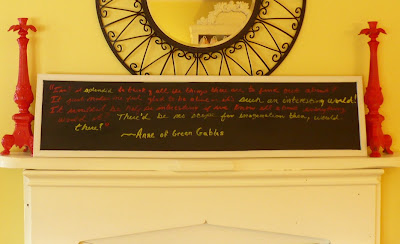 "Isn't it splendid to think of all the things there are to find out about?
It just makes me feel glad to be alive - it's such an interesting world!
It wouldn't be half so interesting if we know all about everything,
would it? There'd be no scope for imagination then, would
there?"
~Anne of Green Gables